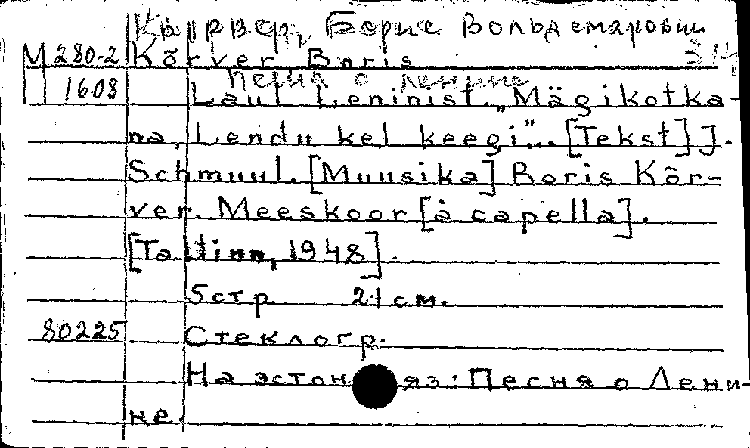 Кырвер, Борис Вольдемарович
М 280-2 Kõrver Boris 314
Песня о Ленине
1608 Laul Leninist. „Mägikotka-
na, Lendu kel keegi"... [Tekst] J.
Schmuul. [Muusika] Boris Kõr-
ver. Meeskoor [à capella].
[Tallinn, 1948].
5 стр 21 см.
80225 Стеклогр.
На эстон яз: Песня о Лени-
не.